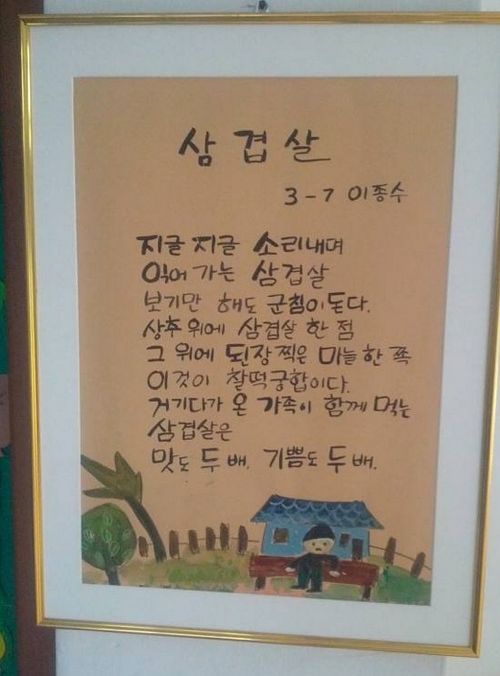 삼겹살
3-7 이종수
지글 지글 소리내며
익어 가는 삼겹살
보기만 해도 군침이돈다.
상추 위에 삼겹살 한 점
그 위에 된장 찍은 마늘 한 쪽
이것이 찰떡궁합이다.
거기다가 온 가족이 함께 먹는
삼겹살은
맛도 두 배. 기쁨도 두 배.